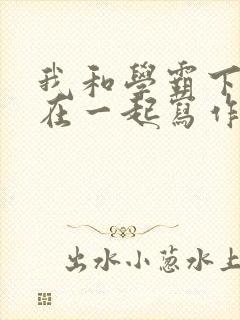 我和學霸下
在一起寫作
出水小蔥水上